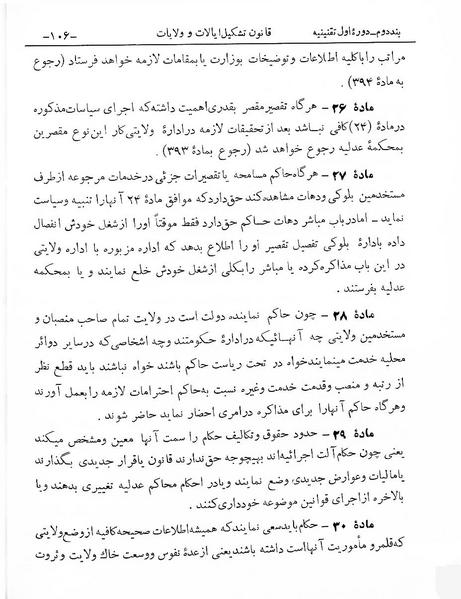 بنددوم_دورهٔ اول تقنینیه قانون تشکیل ایالات و ولایات -۱۰۶-
مراتب را باکلیه اطلاعات وتوضیحات بوزارت یا بمقامات لازمه خواهد فرستاد (رجوع
به مادهٔ ۳۹۴) .
مادهٔ ۲۶ - هرگاه تقصیر مقصر بقدری اهمیت داشته که اجرای سیاسات مذکوره
درمادهٔ (۲۴) کافی نباشد بعد از تحقیقات لازمه در ادارهٔ ولایتی کار این نوع مقصرین
بمحکمهٔ عدلیه رجوع خواهد شد (رجوع بمادهٔ ۳۹۳) .
مادهٔ ۲۷ - هرگاه حاکم مسامحه یا تقصیرات جزئی درخدمات مرجوعه ازطرف
مستخدمین بلوکی ودهات مشاهده کند حق دارد که موافق مادهٔ ۲۴ آنها را تنبیه وسیاست
نماید _ اما درباب مباشر دهات حاکم حق دارد فقط موقتاً او را ازشغل خودش انفصال
داده بادارهٔ بلوکی تفصیل تقصیر او را اطلاع بدهد که اداره مزبوره با اداره ولایتی
در این باب مذاکره کرده یا مباشر را بکلی ازشغل خودش خلع نمایند و یا بمحکمه
عدلیه بفرستند .
مادهٔ ۲۸ - چون حاکم نماینده دولت است در ولایت تمام صاحب منصبان و
مستخدمین ولایتی چه آنهائیکه درادارهٔ حکومتند وچه اشخاصی که درسایر دوائر
محلیه خدمت مینمایند خواه در تحت ریاست حاکم باشند خواه نباشند باید قطع نظر
از رتبه و منصب وقدمت خدمت وغیره نسبت به حاکم احترامات لازمه را بعمل آورند
وهرگاه حاکم آنها را برای مذاکره درامری احضار نماید حاضر شوند .
مادهٔ ۲۹ - حدود حقوق وتکالیف حکام را سمت آنها معین ومشخص میکند
یعنی چون حکام آلت اجرائیه‌اند بهیچوجه حق ندارند قانون یاقرار جدیدی بگذارند
یامالیات وعوارض جدیدی وضع نمایند ویادر احکام محاکم عدلیه تغییری بدهند ویا
بالاخره ازاجرای قوانین موضوعه خودداری کنند .
مادهٔ ۳۰ - حکام باید سعی نمایند که همیشه اطلاعات صحیحه کافیه از وضع ولایتی
که قلمرو مأموریت آنهااست داشته باشند یعنی از عدهٔ نفوس ووسعت خاك ولایت وثروت